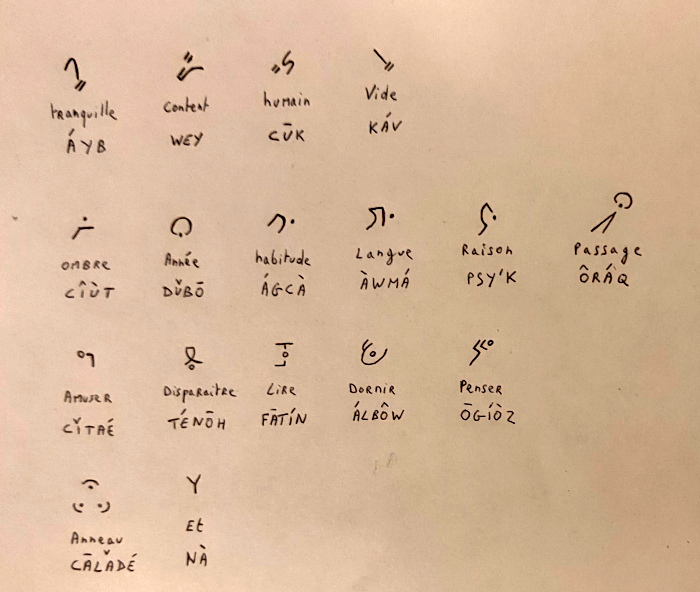 tranquille Content humain Vide
ÁYB WEY CŪK KÁV
OMBRE Année habitude Langue Raison Passage
CÎÙT DǓBŌ ÁGCÀ ÀWMÁ PSY'K ÔRÁQ
Amuser Disparaitre Lire Dormir Penser
CǏTAÉ TÉNŌH FĀTÍN ÁLBÔW ŌGÍÒZ
Anneau Et
CĀLǍDÉ NÀ